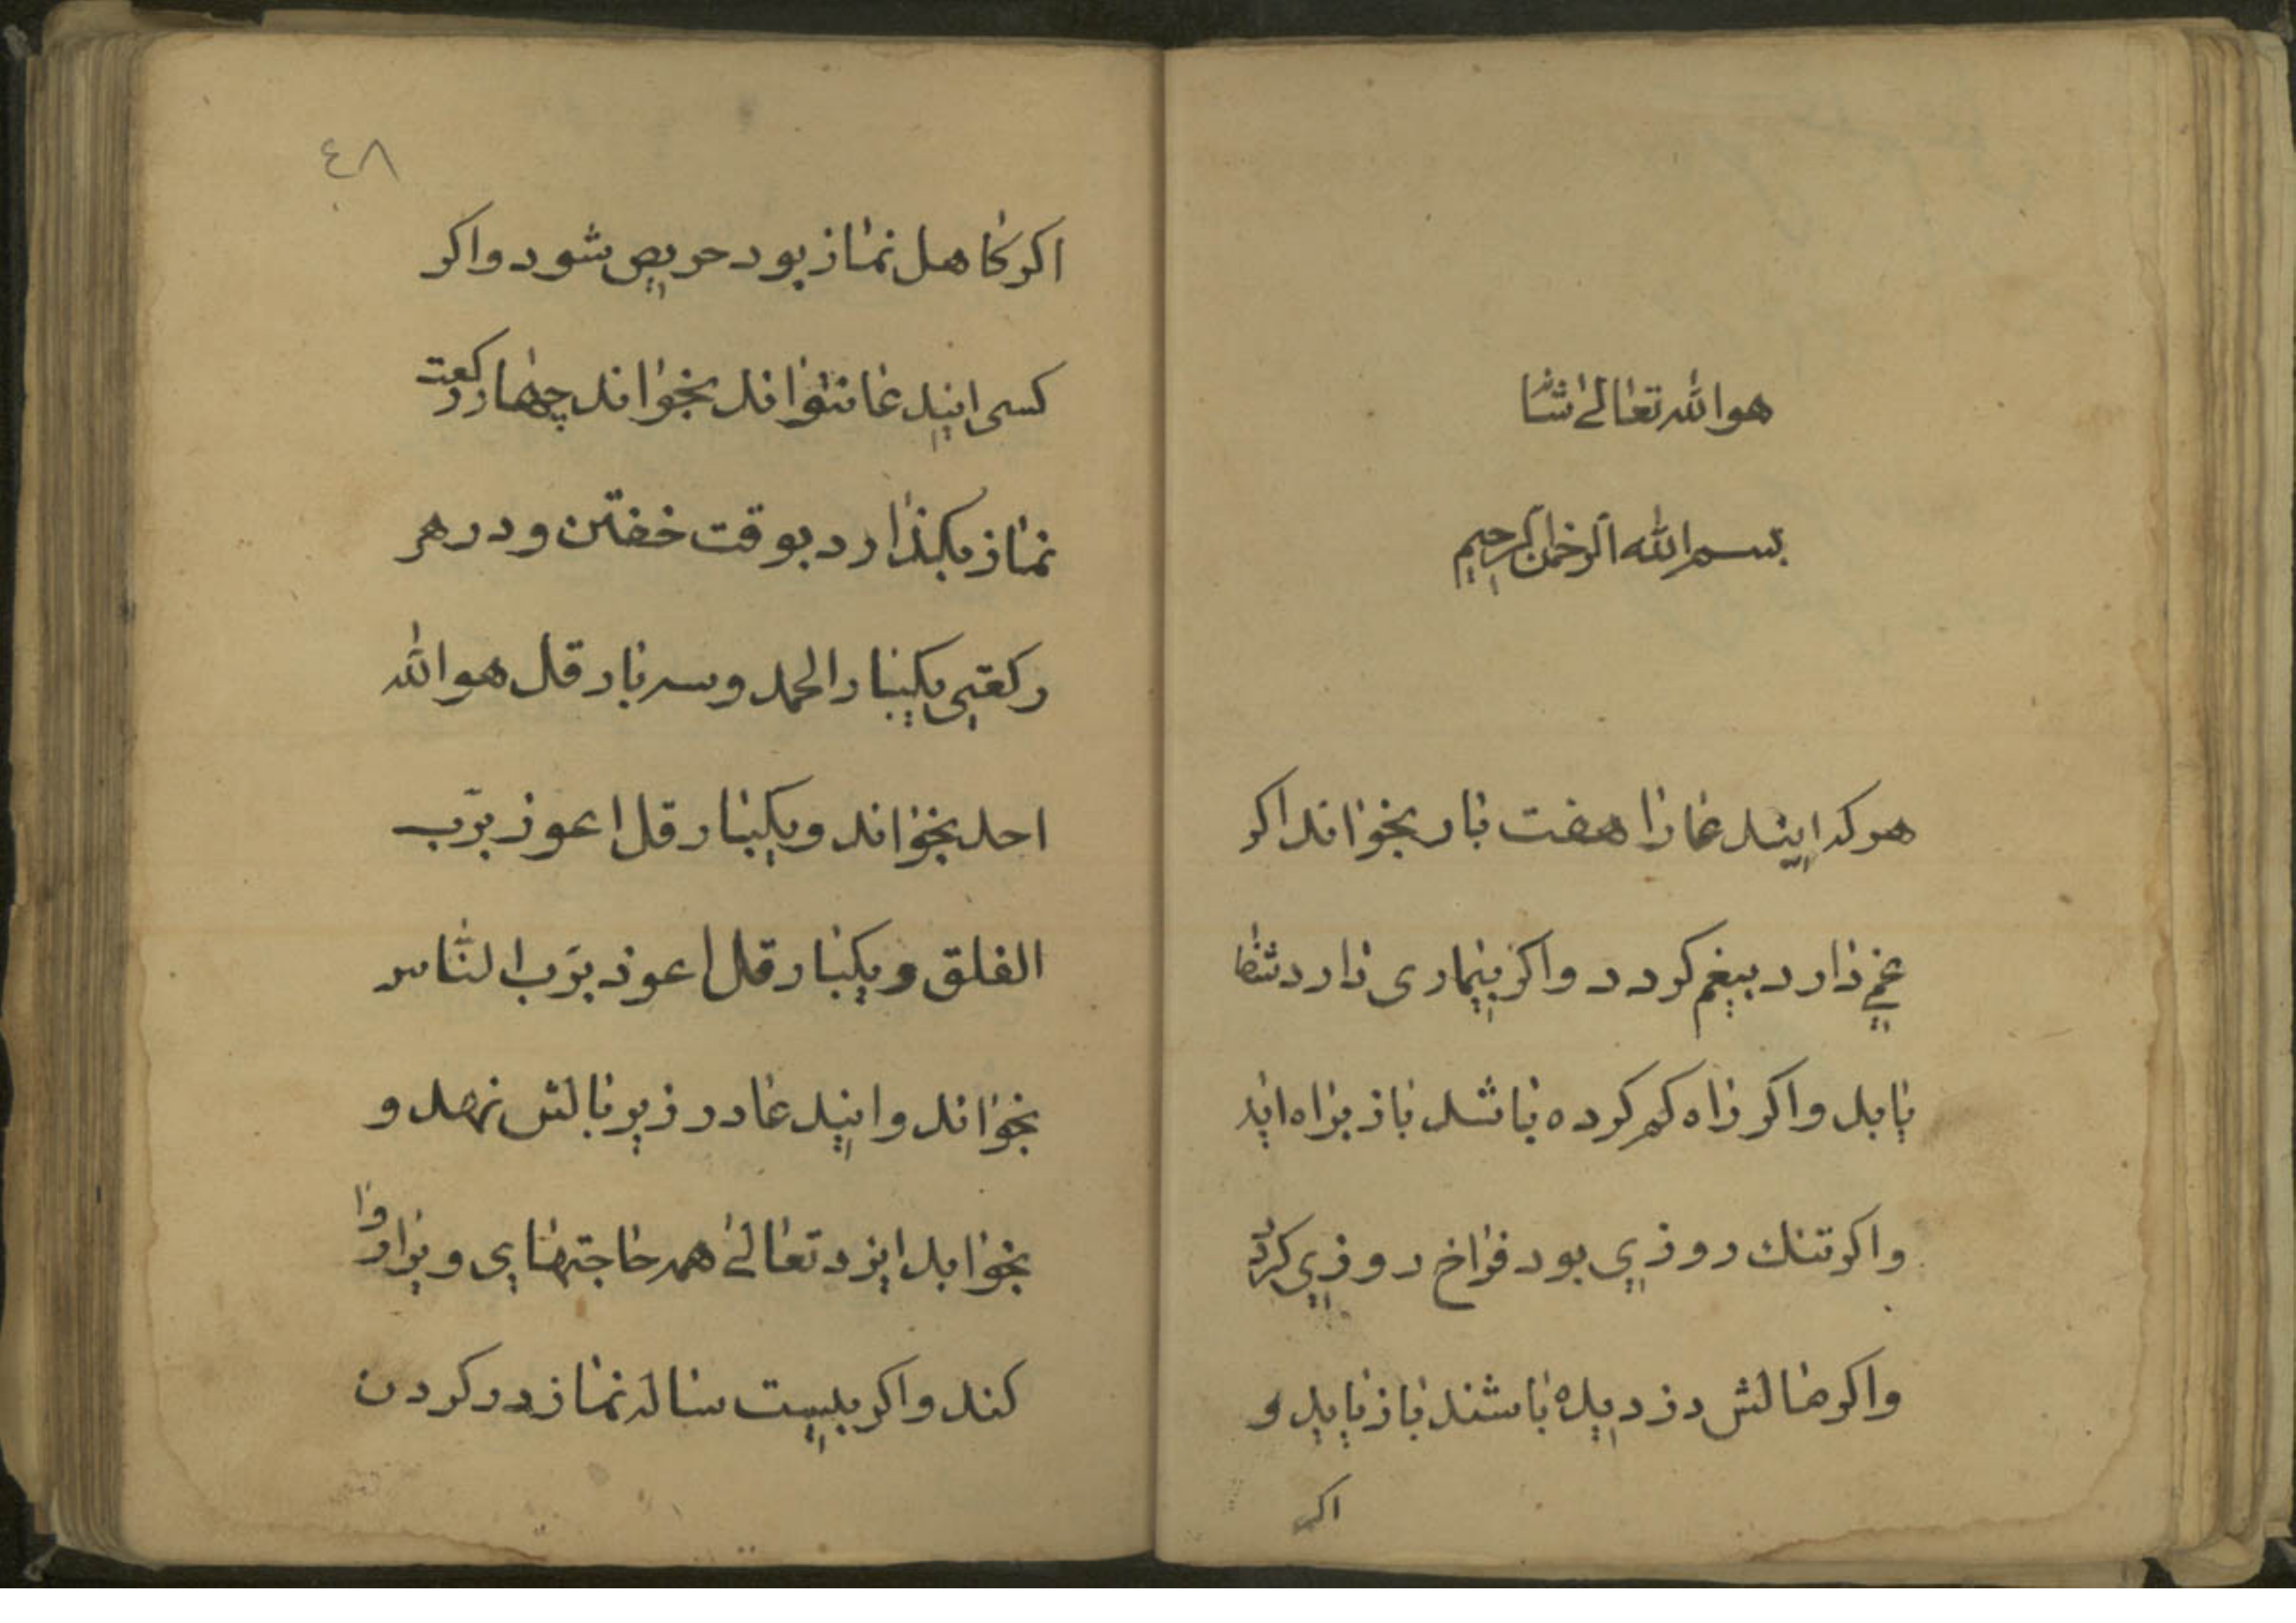 هو الله تعالی شانه
بسم الله الرحمن الرحیم
هر که ایندعا را هفت بار بخواند اکر
غمی دارد بیغم کردد واکر بیماری دارد شفا
یابد واکر راه کم کرده باشد باز براه اید
واکر تنک روزی بود فراخ روزی کردد
واکر مالش دزدیده باشند باز یابد و
اکر
٤٨
اکر کاهل نماز بود حریص شود واکر
کسی ایندعا نتواند بخواند چهار رکعت
نماز بکذارد بوقت خفتن ودر هر
رکعتی یکبار الحمد وسه بار قل هو الله
احد بخواند ویکبار قل اعوذ برب
الفلق ویکبار قل اعوذ برب الناس
بخواند وایندعا در زیر بالش نهد و
بخوابد ایزد تعالی همه حاجتهای ویرا روا
کند واکر بیست ساله نماز در کردن